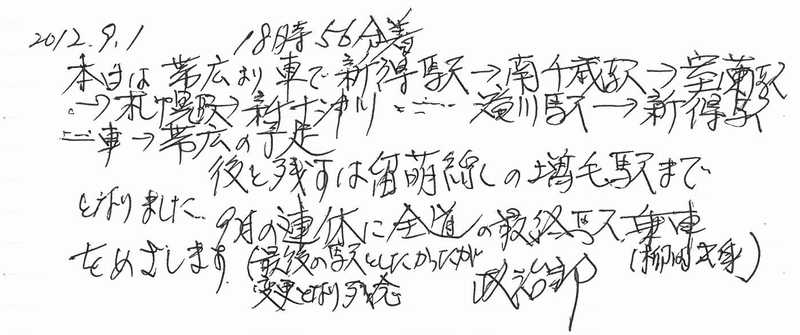 2012.9.1 18時56分着
本日は帯広より車で新得駅→南千歳駅→室蘭駅
→札幌駅→新十津川 滝川駅→新得駅
車→帯広の予定
後と残すは留萌線の増毛駅まで
となりました 9月の連休に全道の最終 乗車
をめざします (最後の駅としたかったが
変更となり残念 政治郎